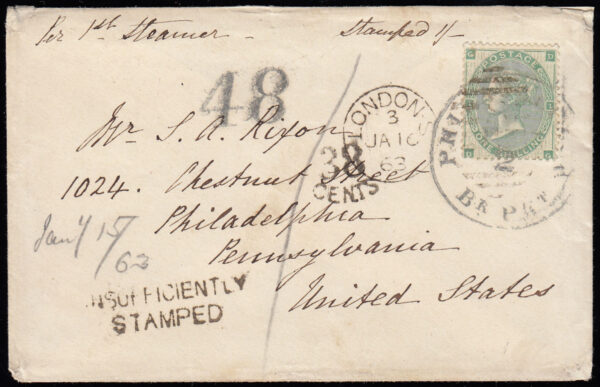 Per 1st Steamer
Stamped 1/-
48
POSTAGE
ONE SHILLING
LONDON
3
JA 16
63
PHIL
BR PKT
38
CENTS
Mr. S. A. Rixon
1024. Chestnut Street
Philadelphia
Pennsylvania
United States
Jany 15/
63
INSUFFICIENTLY
STAMPED